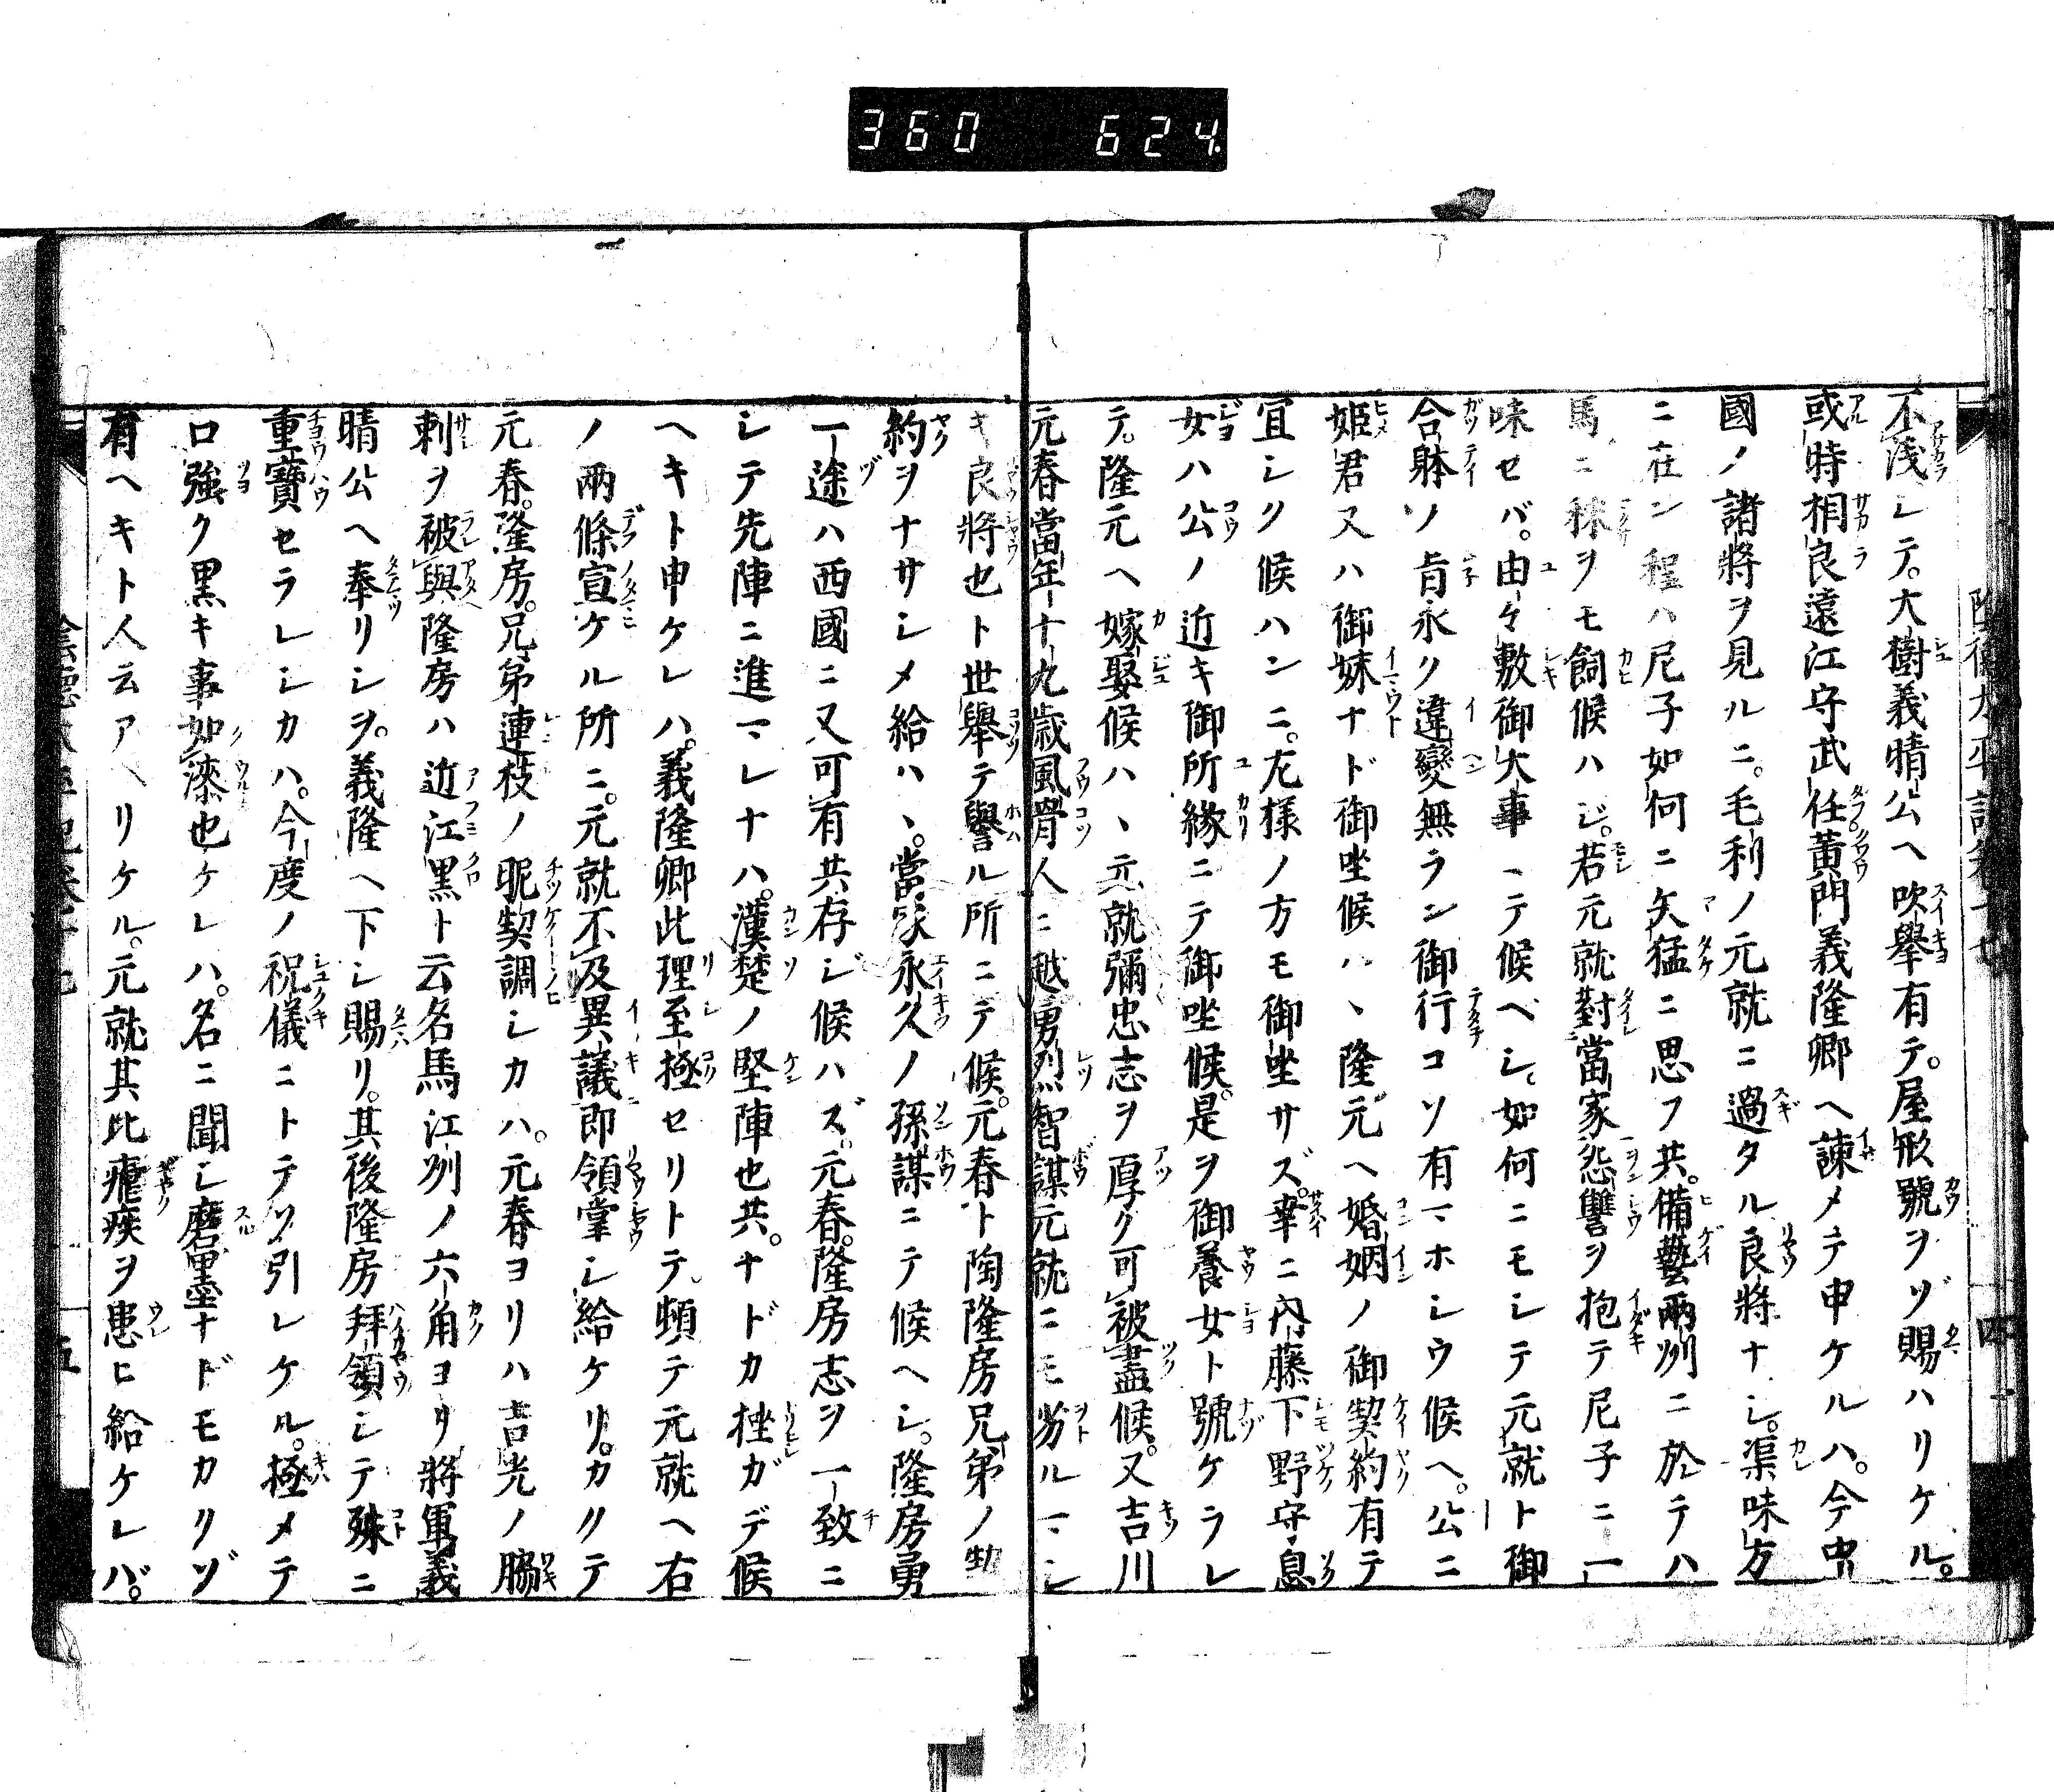 360 624
不淺シテ。大樹義晴公ヘ吹擧有テ。屋形號ヲゾ賜ハリケル。
或時相良遠江守武任黄門義隆卿ヘ諫メテ申ケルハ。今中
國ノ諸將ヲ見ルニ。毛利ノ元就ニ過タル良將ナシ。渠味方
ニ在ン程ハ尼子如何ニ矢猛ニ思フ共。備藝兩州ニ於テハ
馬ニ秣ヲモ飼候ハジ。若元就對當家怨讐ヲ抱テ尼子ニ一
味セバ。由々敷御大事ヽテ候ベシ。如何ニモシテ元就ト御
合躰ノ旨永ク違變無ラン御行コソ有マホシウ候ヘ。公ニ
姫君又ハ御妹ナド御坐候ハヽ隆元ヘ婚姻ノ御契約有テ
宜シク候ハンニ。左樣ノ方モ御坐サズ。幸ニ内藤下野守息
女ハ公ノ近キ御所縁ニテ御坐候。是ヲ御養女ト號ケラレ
テ。隆元ヘ嫁娶候ハヽ元就彌忠志ヲ厚ク可被盡候。又吉川
元春當年十九歳風骨人ニ越勇烈智謀元就ニモ劣ルマシ
キ良將也ト世擧テ譽ル所ニテ候。元春ト陶隆房兄弟ノ
約ヲナサシメ給ハヽ。當家永久ノ孫謀ニテ候ヘシ。隆房勇
一途ハ西國ニ又可有共存ジ候ハズ。元春。隆房志ヲ一致ニ
シテ先陣ニ進マレナハ。漢楚ノ堅陣也共。ナドカ挫ガデ候
ヘキト申ケレハ。義隆卿此理至極セリトテ。頓テ元就ヘ右
ノ兩條宣ケル所ニ。元就不及異議即領掌シ給ケリ。カクテ
元春。隆房。兄弟連枝ノ昵契調シカハ。元春ヨリハ吉光ノ脇
刺ヲ被與隆房ハ近江黒ト云名馬江州ノ六角ヨリ將軍義
晴公ヘ奉リシヲ。義隆ヘ下シ賜リ。其後隆房拜領シテ殊ニ
重寶セラレシカハ。今度ノ祝儀ニトテゾ引レケル。極メテ
口強ク黒キ事如漆也ケレハ。名ニ聞シ磨墨ナドモカリゾ
有ヘキト人云アヘリケル。元就其比瘧疾ヲ患ヒ給ケレバ。
四
五